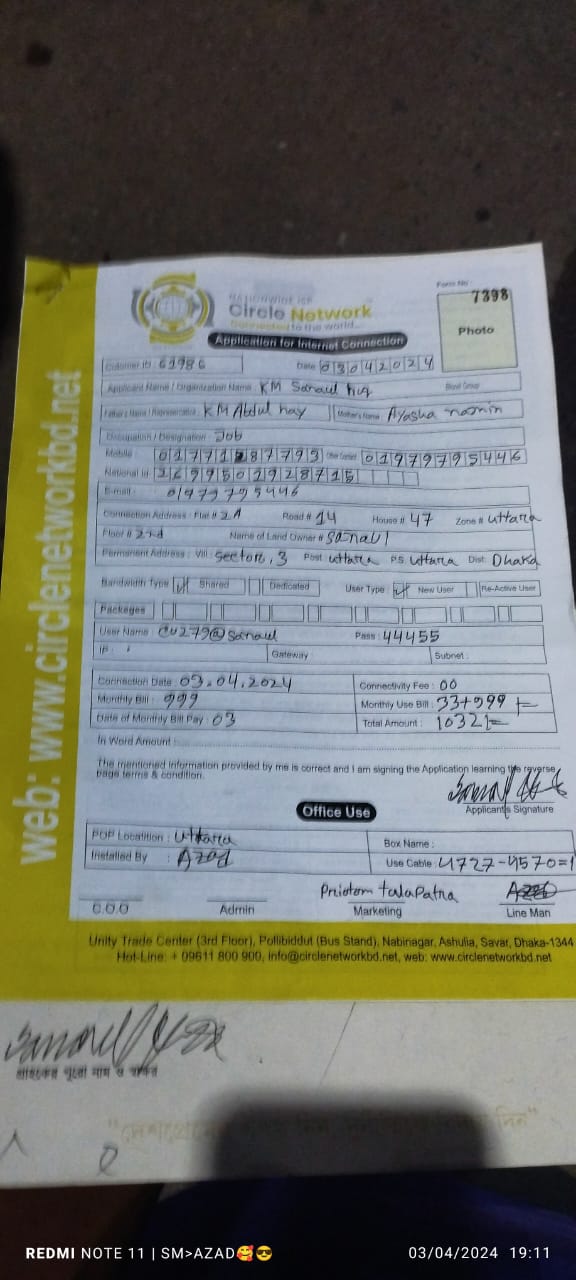 Form No
7398
NATIONWIDE ISP
Circle Network
Connected to the world...
Photo
Application for Internet Connection
Customer ID : 61986
Date 03042024
Applicant Name / Organization Name : KM Sanaul huq
Blood Group
Father's Name / Representative : KM Abdul hay
Mother's Name : Ayasha
Occupation / Designation : Job
Mobile : 01771887793 Other Contact 01979795446
National Id 2699501928715
E-mail : 01979795446
Connection Address : Flat # 2A Road # 14 House # 47 Zone # uttara
Floor # 2nd Name of Land Owner # Sanaul
Permanent Address : Vill : sector, 3 Post uttara P.S uttara Dist: Dhaka
Bandwidth Type Shared Dedicated User Type : New User Re-Active User
Packages
User Name : @Sanaul Pass : 44455
IP : Gateway : Subnet :
Connection Date : 03.04.2024 Connectivity Fee : 00
Monthly Bill : 999 Monthly Use Bill : 33+999/=
Date of Monthly Bill Pay : 03 Total Amount : 1032/=
In Word Amount :
The mentioned information provided by me is correct and I am signing the Application learning the reverse
page terms & condition.
Applicant's Signature
Office Use
POP Locatition : Uttara Box Name :
Installed By : Azad Use Cable : 4727-4570=1
Priotom talapatra
C.O.O Admin Marketing Line Man
Unity Trade Center (3rd Floor), Pollibiddut (Bus Stand), Nabinagar, Ashulia, Savar, Dhaka-1344
Hot-Line: + 09611 800 900, info@circlenetworkbd.net, web: www.circlenetworkbd.net
web: www.circlenetworkbd.net
গ্রাহকের পুরো নাম ও স্বাক্ষর
REDMI NOTE 11 | SM>AZAD🥰😎
03/04/2024 19:11